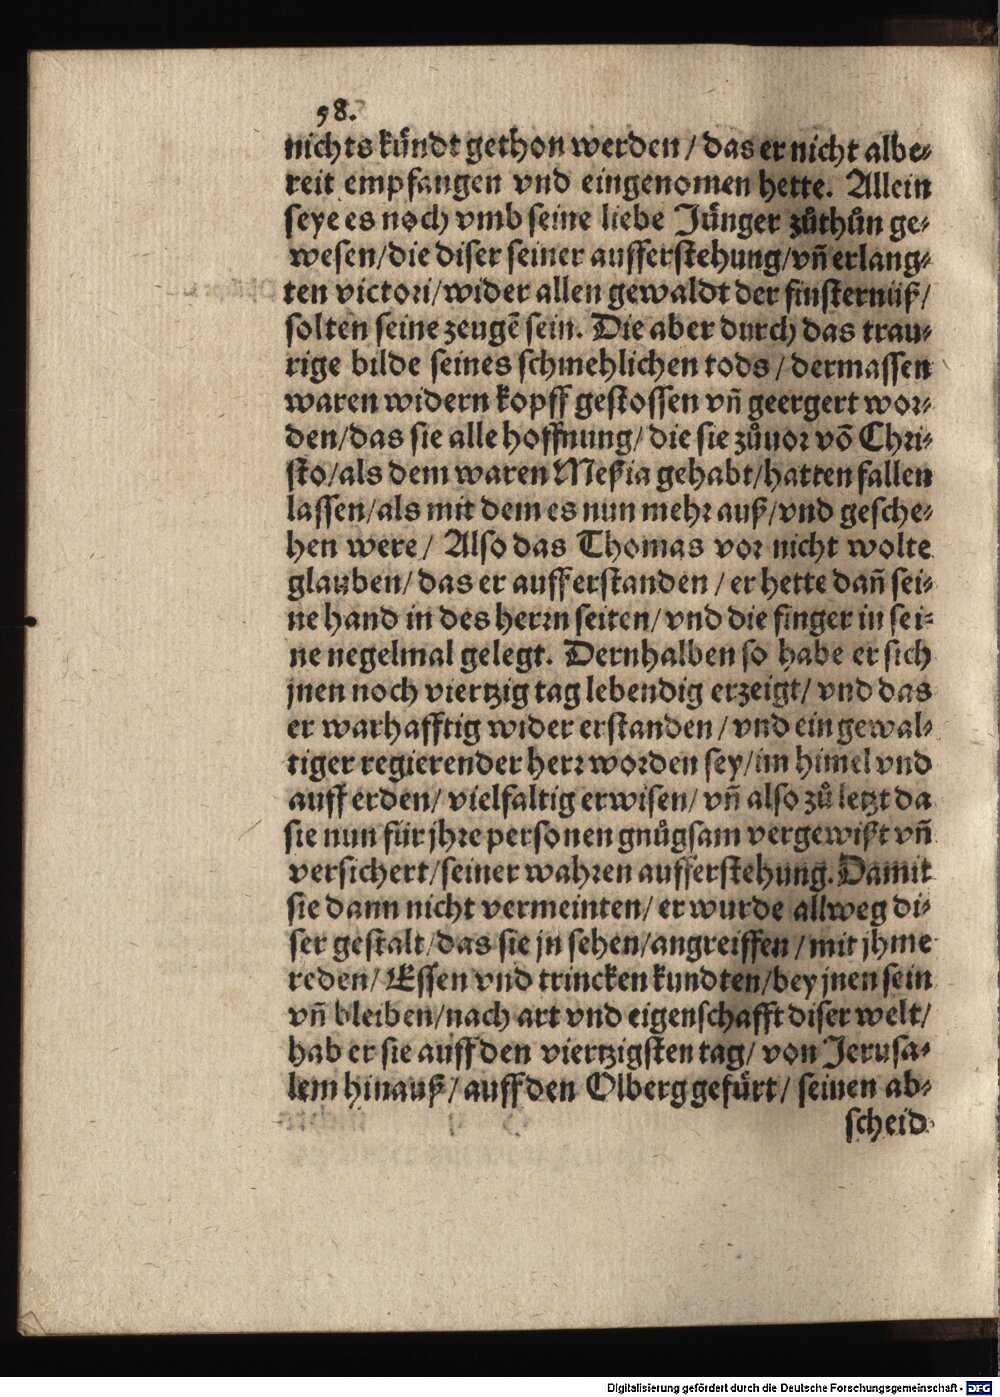 58.
nichts kuͤndt gethon werden / das er nicht albe⸗
reit empfangen vnd eingenomen hette. Allein
seye es noch vmb seine liebe Juͤnger zuͦthuͦn ge⸗
wesen/die diser seiner aufferstehung/vñ erlang⸗
ten victori/wider allen gewaldt der finsternüß/
solten seine zeugẽ sein. Die aber durch das trau⸗
rige bilde seines schmehlichen tods / dermassen
waren widern kopff gestossen vñ geergert wor⸗
den/das sie alle hoffnung/ die sie zuͦuor võ Chri⸗
sto/als dem waren Meßia gehabt/hatten fallen
lassen/als mit dem es nun mehr auß/vnd gesche⸗
hen were / Also das Thomas vor nicht wolte
glauben/ das er aufferstanden / er hette dañ sei⸗
ne hand in des herrn seiten/ vnd die finger in sei⸗
ne negelmal gelegt. Dernhalben so habe er sich
jnen noch viertzig tag lebendig erzeigt/ vnd das
er warhafftig wider erstanden / vnd ein gewal⸗
tiger regierender herr worden sey/im himel vnd
auff erden/ vielfaltig erwisen/ vñ also zuͦ letzt da
sie nun für jhre personen gnuͦgsam vergewißt vñ
versichert/seiner wahren aufferstehung. Damit
sie dann nicht vermeinten/ er wurde allweg di⸗
ser gestalt/das sie jn sehen/angreiffen / mit jhme
reden/ Essen vnd trincken kundten/bey jnen sein
vñ bleiben/nach art vnd eigenschafft diser welt/
hab er sie auff den viertzigsten tag/ von Jerusa⸗
lem hinauß/ auff den Olberg gefuͤrt/ seinen ab⸗
scheid
Digitalisierung gefördert durch die Deutsche Forschungsgemeinschaft - DFG